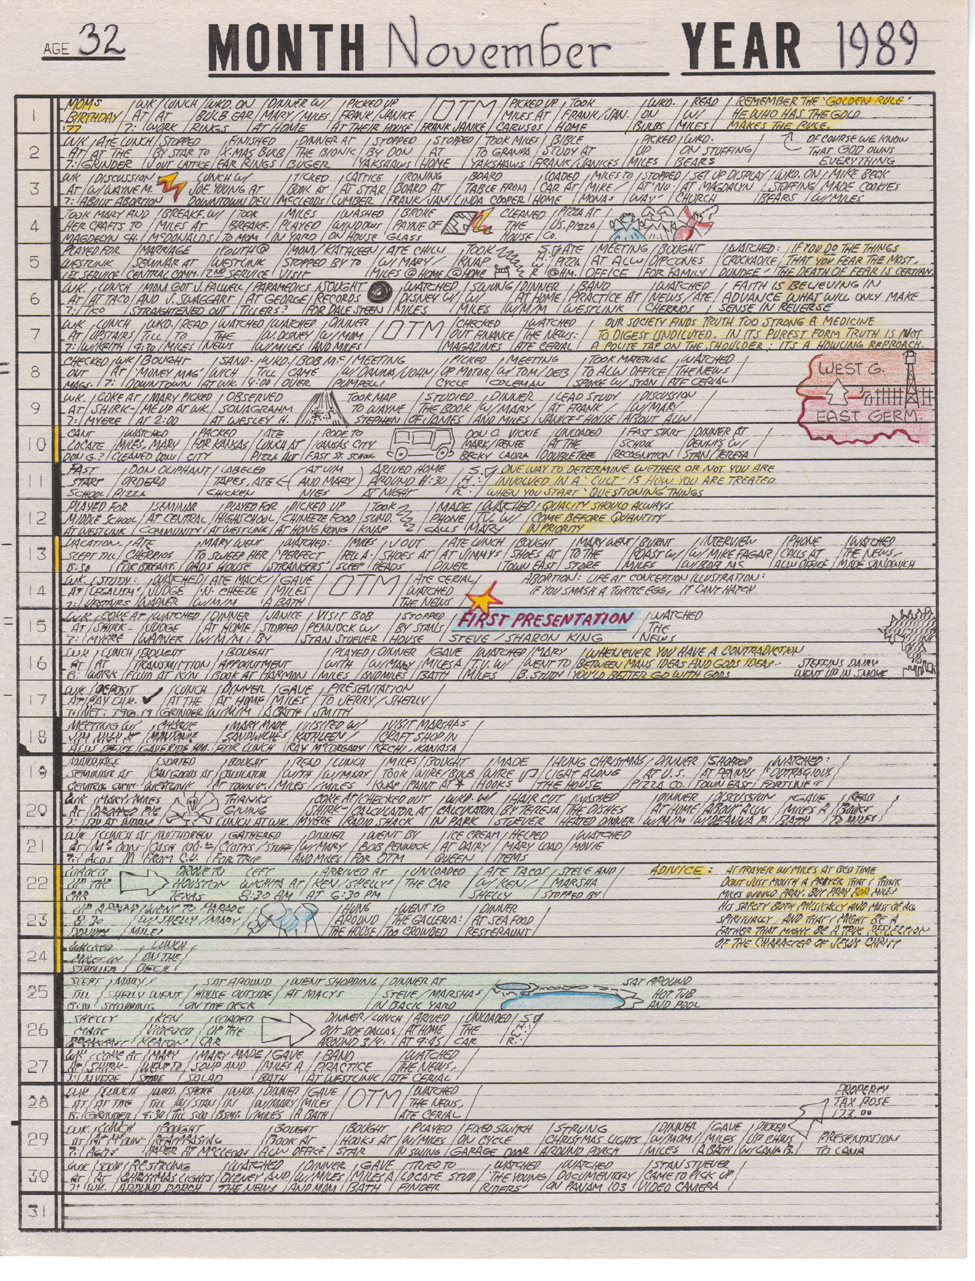 AGE 32 MONTH November YEAR 1989
1
MOM'S / WK / LUNCH / WKD. ON / DINNER W/ / PICKED UP / OTM / PICKED UP / TOOK / WKD. / READ / REMEMBER THE 'GOLDEN RULE'
BIRTHDAY / AT / AT / BULB EAR / MARY/MILES / FRANK/JANICE / MILES AT / FRANK/JAN. / ON / W/ / HE WHO HAS THE GOLD
77 / 7: / WORK / RINGS / AT HOME / AT THEIR HOUSE / FRANK/JANICE / CARUSOS / HOME / BULBS / MILES / MAKES THE RULE.
2
WK / ATE LUNCH / STOPPED / FINISHED / DINNER AT / STOPPED / STOPPED / TOOK MILES / BIBLE / PICKED / WKD. / OF COURSE WE KNOW
AT / AT THE / BY STAR TO / X-MAS BULB / THE BIONIC / BY DON / AT / TO GRANDS / STUDY AT / UP / ON STUFFING / THAT GOD OWNS
7: / GRINDER / LATTICE / EAR RINGS / BURGER / YAKSHAWS / HOME / YAKSHAWS / FRANK/JANICES / MILES / BEARS / EVERYTHING
3
WK / DISCUSSION / LUNCH W/ / PICKED / LATTICE / IRONING / BOARD / LOADED / MILES TO / STOPPED / SET UP DISPLAY / WKD. ON / MIKE BECK
AT / W/ WAYNE M. / JOE YOUNG AT / BOOK AT / AT STAR / BOARD AT / TABLE FROM / CAR AT / MIKE/ / AT 'NU / AT MAGDALYN / STUFFING / MADE COOKIES
7: / ABOUT ABORTION / DOWNTOWN DELI / MCCLEODS / LUMBER / FRANK/JAN / LINDA COOPER / HOME / MONAS / WAY' / CHURCH / BEARS / W/ MILES
4
TOOK MARY AND / BREAKF. W/ / TOOK / MILES / WASHED / BROKE / CLEANED / PIZZA AT
HER CRAFTS TO / MILES AT / BREAKF. / PLAYED / WINDOWS / PAYNE OF / THE / US. PIZZA
MAGDELYN CH. / MCDONALDS / TO MOM / IN YARD / ON HOUSE / GLASS / HOUSE / CO.
5
PLAYED FOR / MARRIAGE / YOUTH / MOM/KATHLEEN / ATE CHILI / TOOK / STATE / MEETING / BOUGHT / WATCHED: / IF YOU DO THE THINGS
WESTLINK / SEMINAR AT / WESTLINK / STOPPED BY TO / W/ MARY/ / KNAP / PIZZA / AT ALW / DIPCONES / CROCKADILE / THAT YOU FEAR THE MOST,
1ST SERVICE / CENTRAL COMM. / 2ND SERVICE / VISIT / MILES @ HOME / @ HOME / @ HM. / OFFICE / FOR FAMILY / DUNDEE / THE DEATH OF FEAR IS CERTAIN.
6
WK. / LUNCH / MOM GOT / J. FALWELL / PARAMEDICS / SOUGHT / WATCHED / SWING / DINNER / BAND / WATCHED / FAITH IS BELIEVING IN
AT / AT TACO / AND J. SWAGGART / AT GEORGE / RECORDS / DISNEY W/ / W/ / AT HOME / PRACTICE AT / NEWS/ATE / ADVANCE WHAT WILL ONLY MAKE
/ TICO / STRAIGHTENED OUT / TILLERS? / FOR DALE STEEN / MILES / MILES / W/M/M / WESTLINK / CHERRIOS / SENSE IN REVERSE
7
WK. / LUNCH / WKD. / READ / WATCHED / WATCHED / DINNER / OTM / CHECKED / WATCHED / OUR SOCIETY FINDS TRUTH TOO STRONG A MEDICINE
AT / UPSTAIRS / TILL / TO / THE / W. DISNEY / W/ MOM / OUT FINANCE / THE NEWS: / TO DIGEST UNDILUTED. IN ITS PUREST FORM TRUTH IS NOT
7: / W/ KEITH / 4:30 / MILES / NEWS / W/ MILES / AND MILES / MAGAZINES / ATE CERIAL / A POLITE TAP ON THE SHOULDER: IT IS A HOWLING REPROACH.
8
CHECKED / WK / BOUGHT / SAND- / WKD / BOB MC / MEETING / PICKED / MEETING / TOOK MATERIAL / WATCHED
OUT / AT / 'MONEY MAG' / WICH / TILL / CAME / W/ DAVINA/JOHN / UP MOTOR / W/ TOM/DEB / TO ALW OFFICE / THE NEWS
MAGS. / 7: / DOWNTOWN / AT WK. / 4:00 / OVER / PUMMELL / CYCLE / COLEMAN / SPOKE W/ STAN / ATE CERIAL
WEST G.
EAST GERM.
9
WK. / COKE AT / MARY PICKED / OBSERVED / TOOK MAP / STUDIED / DINNER / LEAD STUDY / DISCUSSION
AT / SHIRK- / ME UP AT WK. / SONAGRAHM / TO WAYNE / THE BOOK / W/ MARY / AT FRANK/ / W/ MARY
7: / MYERE / AT 2:00 / AT WESLEY H. / STEPHEN / OF JAMES / AND MILES / JANICE HOUSE / ABOUT ALW
10
CANT / WATCHED / PACKED / ATE / RODE TO / DON O. / VICKIE / UNLOADED / FAST START / DINNER AT
LOCATE / MILES, MARY / FOR KANSAS / LUNCH AT / KANSAS CITY / PARK/RENEE / AT THE / SCHOOL / DENNY'S W/
DON G.? / CLEANED DOWN / CITY / PIZZA HUT / FAST ST. SCHOOL / BECKY LAURA / DOUBLETREE / RECOGNITION / STAN/TERESA
11
FAST / DON OLIPHANT / LABELED / AT VIM / ARIVED HOME / ONE WAY TO DETERMINE WETHER OR NOT YOU ARE
START / ORDERD / TAPES, ATE / (AND MARY) / AROUND 11:30 / INVOLVED IN A 'CULT' IS HOW YOU ARE TREATED
SCHOOL / PIZZA / CHICKEN / NIES / AT NIGHT / WHEN YOU START QUESTIONING THINGS
12
PLAYED FOR / SEMINAR / PLAYED FOR / PICKED UP / TOOK / MADE / WATCHED: / QUALITY SHOULD ALWAYS
MIDDLE SCHOOL / AT CENTRAL / HIGHSCHOOL / CHINEESE FOOD / SUND. / PHONE / T.V. W/ / COME BEFORE QUANTITY
AT WESTLINK / COMMUNITY / AT WESTLINK / AT HONG KONG / KNAP / CALLS / MARY / IN PRIORITY
13
VACATION / ATE / MARY WENT / WATCHED: / MILES / V OUT / ATE LUNCH / BOUGHT / MARY WENT / BURNT / INTERVIEW / PHONE / WATCHED
SLEPT TILL / CHERRIOS / TO SWEEP HER / 'PERFECT / FELL A- / SHOES AT / AT JIMMYS / SHOES AT / TO THE / ROAST W/ / W/ MIKE FAGAR / CALLS AT / THE NEWS,
8:30 / FOR BREAKF. / DADS HOUSE / STRANGERS' / SLEEP / HEADS / DINER / TOWN EAST / STORE / MILES / W/ BOB MC / ALW OFFICE / MADE SANDWICH
14
WK. / STUDY: / WATCHED / ATE MACK / GAVE / OTM / ATE CERIAL / ABORTION: LIFE AT CONCEPTION ILLUSTRATION:
AT / LEGALISM / JUDGE / 'N CHEEZE / MILES / WATCHED / IF YOU SMASH A TURTLE EGG, IT CAN'T HATCH
7: / UPSTAIRS / WAPNER / W/M/M / A BATH / THE NEWS
15
WK. / COKE AT / WATCHED / DINNER / JANICE / VISIT BOB / STOPPED / FIRST PRESENTATION / WATCHED
AT / SHIRK- / JUDGE / AT HOME / STOPPED / PENNOCK W/ / BY STANS / THE
7: / MYERE / WAPNER / W/M/M / BY / STAN STUEVER / HOUSE / STEVE/SHARON KING / NEWS
16
WK / LUNCH / BOUGHT / BOUGHT / PLAYED / DINNER / GAVE / WATCHED / MARY / WHENEVER YOU HAVE A CONTRADICTION
AT / AT / TRANSMITION / APPOINTMENT / WITH / W/ MARY / MILES A / T.V. W/ / WENT TO / BETWEEN MANS IDEAS AND GODS IDEAS / STEFFENS DAIRY
6: / WORK / FLUID AT K/LYN / BOOK AT HARMON / MILES / AND MILES / BATH / MILES / B. STUDY / YOU'D BETTER GO WITH GODS / WENT UP IN SMOKE
17
WK / DEPOSIT / LUNCH / DINNER / GAVE / PRESENTATION
AT / PAY CHK. / AT THE / AT HOME / MILES / TO JERRY/SHELLY
7: / NET: 796.19 / GRINDER / W/M/M / A BATH / SMITH
18
MEETING W/ / CHARLIE / MARY MADE / VISITED W/ / VISIT MARSHAS
JIM NIGH AT / MANTONIE / SANDWICHES / KATHLEEN/ / CRAFT SHOP IN
ALW OFFICE / GAVE RIDE HM. / FOR LUNCH / RAY MCCRARY / KECHI, KANASA
19
MARRIAGE / SORTED / BOUGHT / READ / LUNCH / MILES / BOUGHT / MADE / HUNG CHRISTMAS / DINNER / SHOPPED / WATCHED:
SEMINAR AT / CAN GOODS AT / CALULATOR / WITH / W/ MARY / TOOK / WIRE/BULB / WIRE / LIGHT ALONG / AT U.S. / AT PENNYS / 'OUTRAGIOUS
CENTRAL COMM. / WESTLINK / AT TOWN E. / MILES / MILES / KNAP / PAINT AT * / HOOKS / THE HOUSE / PIZZA CO. / TOWN EAST / FORTUNE'
20
WK / MARY/MILES / THANKS / COKE AT / CHECKED OUT / WKD. W/ / HAIR CUT / WASHED / DINNER / DISCUSSION / GAVE / READ
AT / DROPPED PIE / GIVING / SHIRK- / CALCULATOR AT / CALCULATOR / BY TERESA / THE DISHES / AT HOME / ADOPTION / MILES A / BOOKS
7: / OFF AT WORK / LUNCH AT WK. / MYERE / RADIO SHACK / AT PARK / STUEVER / HEATED DINNER / W/M/M / W/ DEANNA P. / BATH / TO MILES
21
WK / LUNCH AT / WITHDREW / GATHERED / DINNER / WENT BY / ICE CREAM / HELPED / WATCHED
AT / MC DON- / CASH 100.00 / CLOTHS/STUFF / W/ MARY / BOB PENNOCK / AT DAIRY / MARY LOAD / MOVIE
7: / ALDS / M FROM C.U. / FOR TRIP / AND MILES / FOR OTM / QUEEN / ITEMS
22
LOADED / DROVE TO / LEFT / ARRIVED AT / UNLOADED / ATE TACOS / STEVE AND / ADVICE: / AT PRAYER W/ MILES AT BED TIME
UP THE / HOUSTON / WICHITA AT / KEN/SHELLY'S / THE CAR / W/ KEN/ / MARSHA / DON'T JUST MOUTH A PRAYER THAT I THINK
CAR / TEXAS / 6:30 AM / AT 6:30 PM / SHELLY / STOPPED BY / MILES WOULD PRAY, BUT PRAY FOR MILES
23
UP AROUND / WENT TO PARADE / HUNG / WENT TO / DINNER / HIS SAFETY BOTH PHYSICALLY AND MOST OF ALL
8:30 / W/ SHELLY/MARY / AROUND / THE GALLERIA: / AT SEA FOOD / SPIRITUALLY, AND THAT I MIGHT BE A
/ MILES / THE HOUSE / TOO CROWDED / RESTERAUNT / FATHER THAT MIGHT BE A TRUE REFLECTION
OF THE CHARACTER OF JESUS CHRIST
24
WALKED / LUNCH
MILES IN / ON THE
STROLLER / DECK
25
SLEPT / MARY/ / SAT AROUND / WENT SHOPPING / DINNER AT / SAT AROUND
TILL / SHELLY WENT / HOUSE OUTSIDE / AT MACYS / STEVE/MARSHAS / HOT TUB
8:30 / SHOPPING / ON THE DECK / IN BACK YARD / AND POOL
26
SHELLY / KEN / LOADED / DINNER/LUNCH / ARIVED / UNLOADED
MADE / VIDEOED / UP THE / OUT SIDE DALLAS / AT HOME / THE
BREAKFAST / KEATON / CAR / AROUND 3:40 / AT 9:45 / CAR
27
WK / COKE AT / MARY / MARY MADE / GAVE / BAND / WATCHED
AT / SHIRK- / WENT TO / SOUP AND / MILES A / PRACTICE / THE NEWS,
7: / MYERE / STORE / SALAD / BATH / AT WESTLINK / ATE CERIAL
28
WK / LUNCH / WKD. / SPOKE / WKD. / DINNER / GAVE / OTM / WATCHED / PROPERTY
AT / AT THE / TILL / W/ STAN / IN / W/ MARY / MILES / THE NEWS, / TAX ROSE
6: / GRINDER / 4:30 / TILL 5:00 / BSMT. / MILES / A BATH / ATE CERIAL / 173.00
29
WK. / LUNCH / BOUGHT / BOUGHT / BOUGHT / PLAYED / FIXED SWITCH / STRUNG / DINNER / GAVE / PICKED / PRESENTATION
AT / AT MC DON- / WRAPPING / BOOK AT / HOOKS AT / W/ MILES / ON CYCLE / CHRISTMAS LIGHTS / W/ MOM / MILES / UP CHRIS / TO CANA
7: / ALDS / PAPER AT MCCLEODS / ALW OFFICE / STAR / IN SWING / GARAGE DOOR / AROUND PORCH / MILES / A BATH
30
WK / RESTRUNG / WATCHED / DINNER / GAVE / TRIED TO / WATCHED / WATCHED / STAN STUEVER
AT / AT / CHRISTMAS LIGHTS / DISNEY AND / W/ MILES / MILES A / LOCATE STUD / THE YOUNG / DOCUMENTARY / CAME TO PICK UP
7: / WK. / AROUND PORCH / THE NEWS / AND MOM / BATH / FINDER / RIDERS' / ON PANAM 103 / VIDEO CAMERA
31